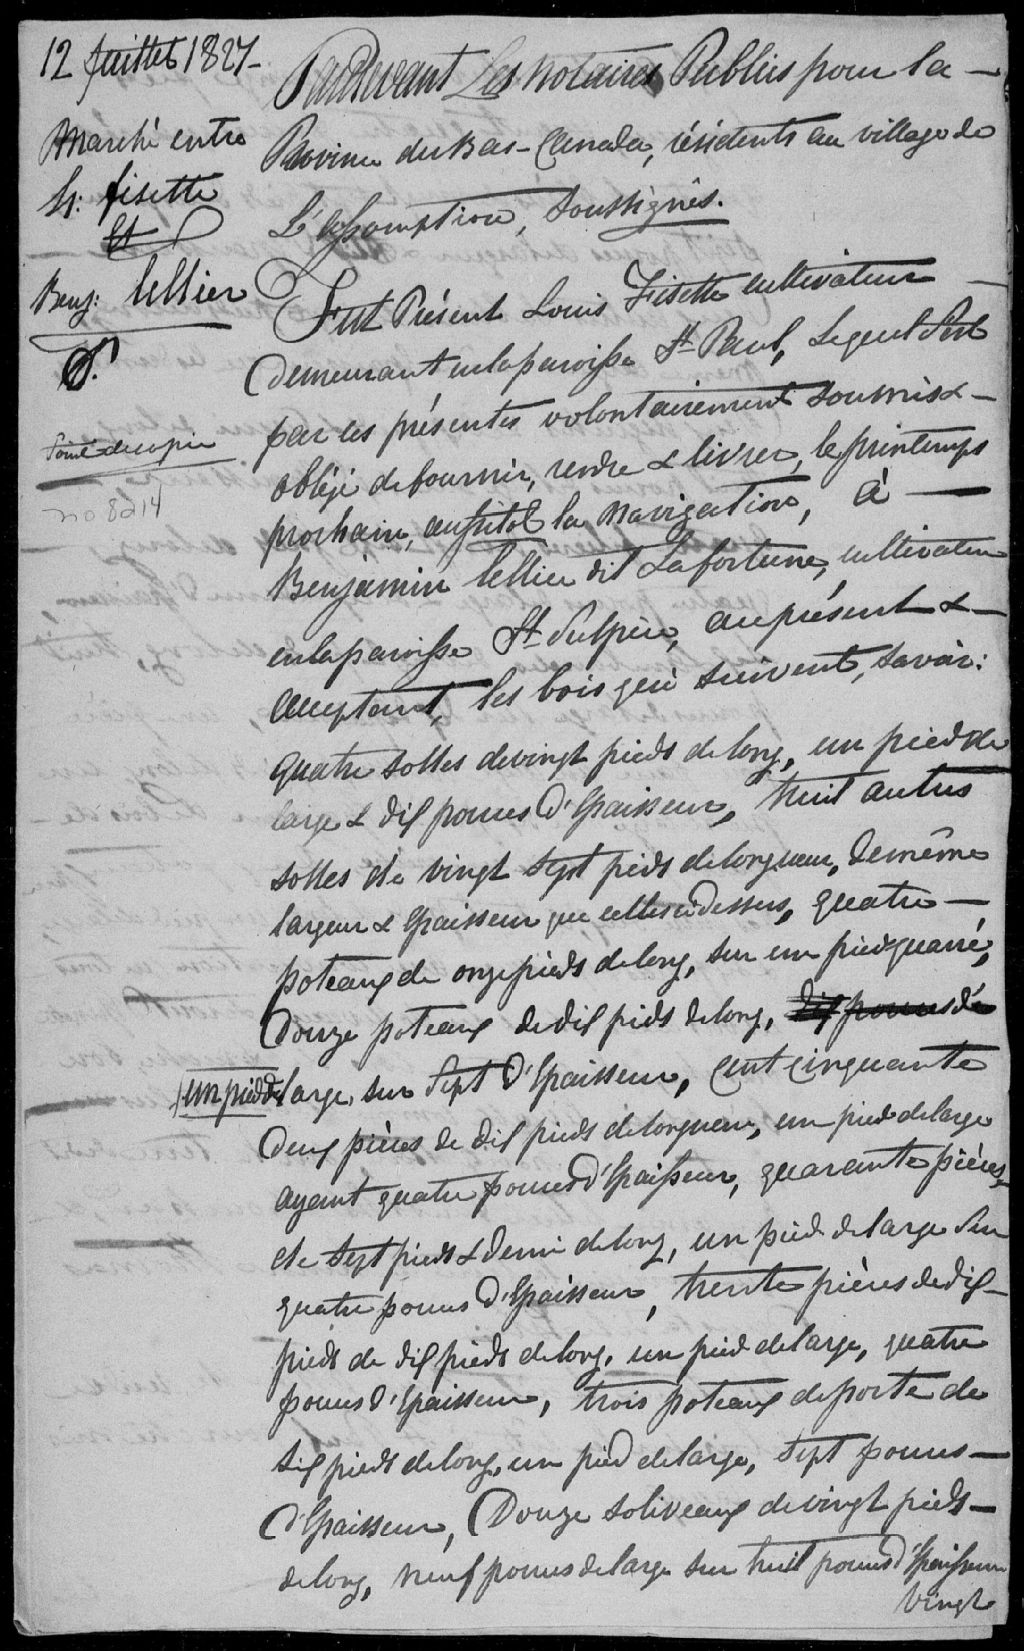 12 Juillet 1827-
Marché entre
Ls: fisette
Et
Benj: tellier
Pardevant Les Notaires Publics pour la —
Province du Bas-Canada, résidents au village de
L'assomption, Soussignés.
Fut Présent Louis Fisette cultivateur —
demeurant en la paroisse St. Paul, Lequel s'est
par ces présentes volontairement soumis & —
obligé de fournir, rendre & livrer, le printemps
prochain, aussitot la Navigation, à —
Benjamin tellier dit Lafortune, cultivateur
en la paroisse St. Sulpice, au présent & —
acceptant, les bois qui suivent, savoir:
quatre solles de vingt pieds de long, un pied de
large & dix pouces d'Epaisseur, huit autres
solles de vingt sept pieds de longueur, de même
largeur & Epaisseur que celles ci dessus, quatre —
poteaux de onze pieds de long, sur un pied quarré,
Douze poteaux de dix pieds de long, dix pouces de
/un pied de/ large, sur Sept d'Epaisseur, Cent cinquante
deux pièces de dix pieds de longueur, un pied de large
ayant quatre pouces d'Epaisseur, quarante pièces,
de sept pieds & demi de long, un pied de large sur
quatre pouces d'Epaisseur, trente pièces de dix —
pieds de dix pieds de long, un pied de large, quatre
pouces d'Epaisseur, trois poteaux de porte de
six pieds de long, un pied de large, sept pouces —
d'Epaisseur, Douze soliveaux de vingt pieds —
de long, neuf pouces de large sur huit pouces d'Epaisseur
Vingt
no 8214